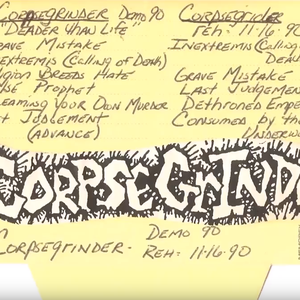 Corpsegrinder Demo 90
"Deader than Life"
rave Mistake
nextremis (Calling of Death)
ligion Breeds Hate
lse Prophet
leaming your Own Murder
st Judgement
(Advance)
Corpsegrinde
Reh: 11·16·90
Inextremis (Calling
Dea
Grave Mistake
Last Judgement
Dethroned Empe
Consumed by the
Underw
CORPSEGRIND
Demo 90
Corpsegrinder- Reh: 11·16·90